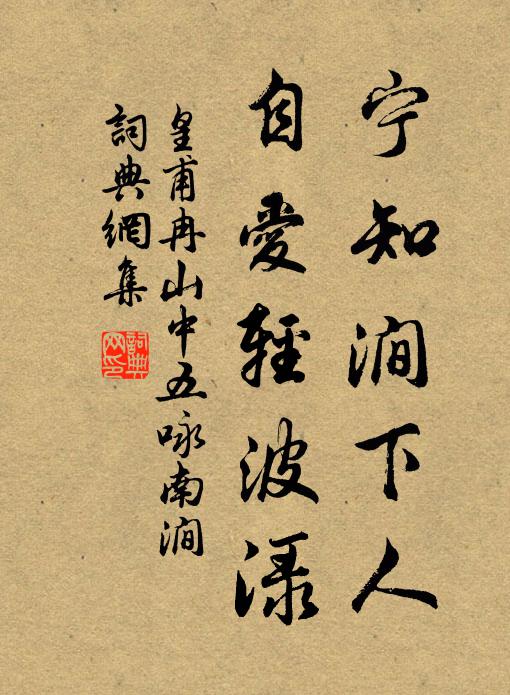 宁知澗下人
自愛輕波渌
皇甫冉山中五咏南澗
詞典網集
詞典
网印